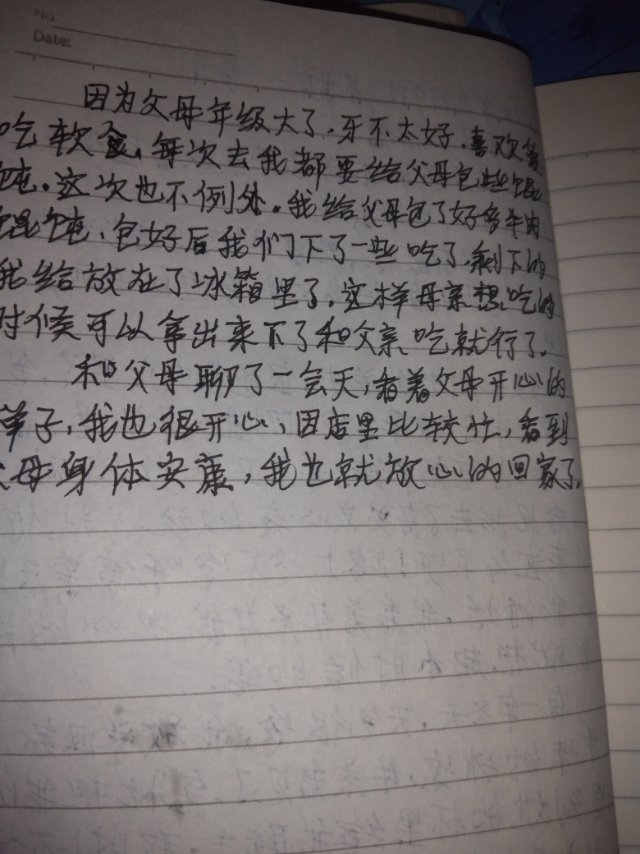 No
Date:
因为父母年级大了,牙不太好,喜欢
吃软食,每次去我都要给父母包些馄
饨,这次也不例外。我给父母包了好多牛肉
馄饨,包好后我们下了一些吃了,剩下的
我给放在了冰箱里了,这样母亲想吃的
时候可以拿出来下了和父亲吃就行了。
和父母聊了一会天,看着父母开心的
单子,我也很开心,因店里比较忙,看到
父母身体安康,我也就放心的回家了。